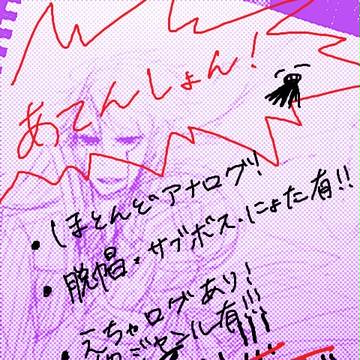 あてんしょん!
・ほとんどアナログ!
・脱帽・サブボス・にょた有!!
・えちゃログあり!
ジャンル有!!!